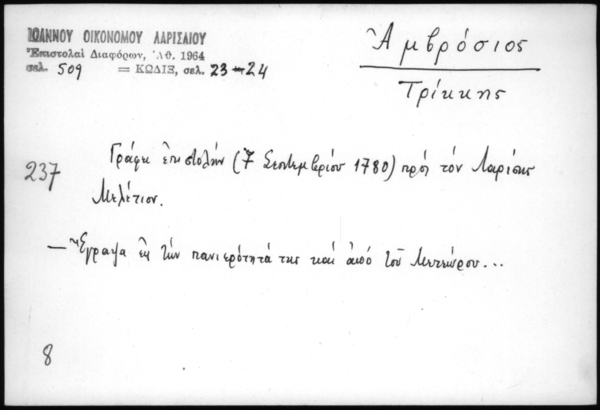 ΙΩΑΝΝΟΥ ΟΙΚΟΝΟΜΟΥ ΛΑΡΙΣΑΙΟΥ
Ἐπιστολαὶ Διαφόρων, Ἀθ. 1964
σελ. 509 = ΚΩΔΙΞ, σελ. 23-24
Ἀμβρόσιος
Τρίκκης
237
Γράφει ἐπιστολὴν (7 Σεπτεμβρίου 1780) πρὸς τὸν Λαρίσης
Μελέτιον.
— Ἔγραψα εἰς τὴν πανιερότητά της καὶ ἀπὸ τοῦ Μετεώρου...
8